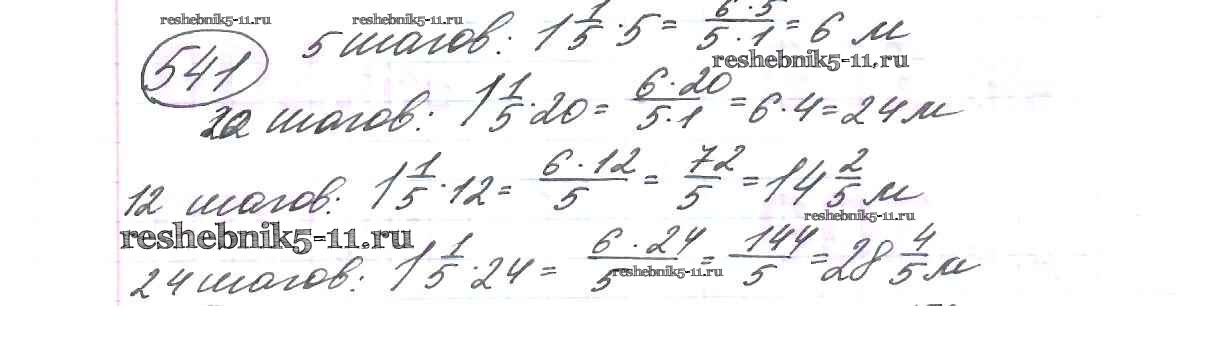 reshebnik5-11.ru reshebnik5-11.ru
541
5 шагов: 1 1/5 · 5 = 6·5/5·1 = 6 м
reshebnik5-11.ru
20 шагов: 1 1/5 · 20 = 6·20/5·1 = 6·4 = 24 м
12 шагов: 1 1/5 · 12 = 6·12/5 = 72/5 = 14 2/5 м
reshebnik5-11.ru
reshebnik5-11.ru
24 шагов: 1 1/5 · 24 = 6·24/5 = 144/5 = 28 4/5 м
reshebnik5-11.ru